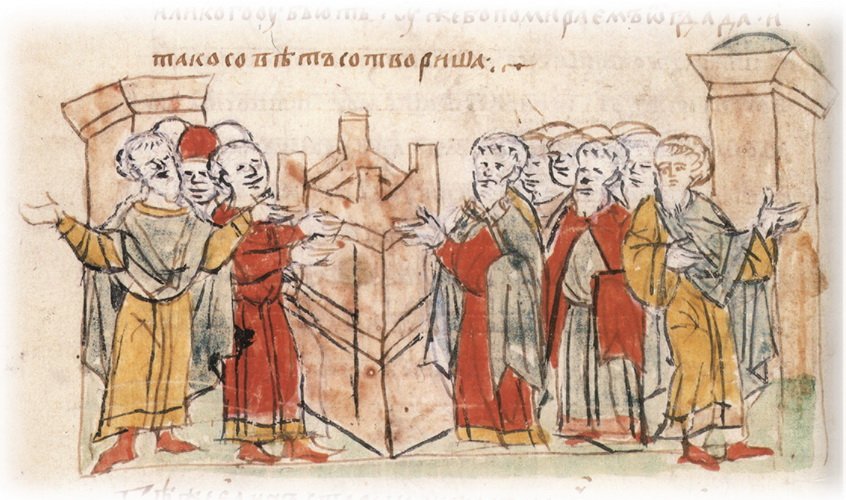 или кого оубьють · оуже бо помираемъ ѿ глада · и
тако совѣтъ сотвориша ·